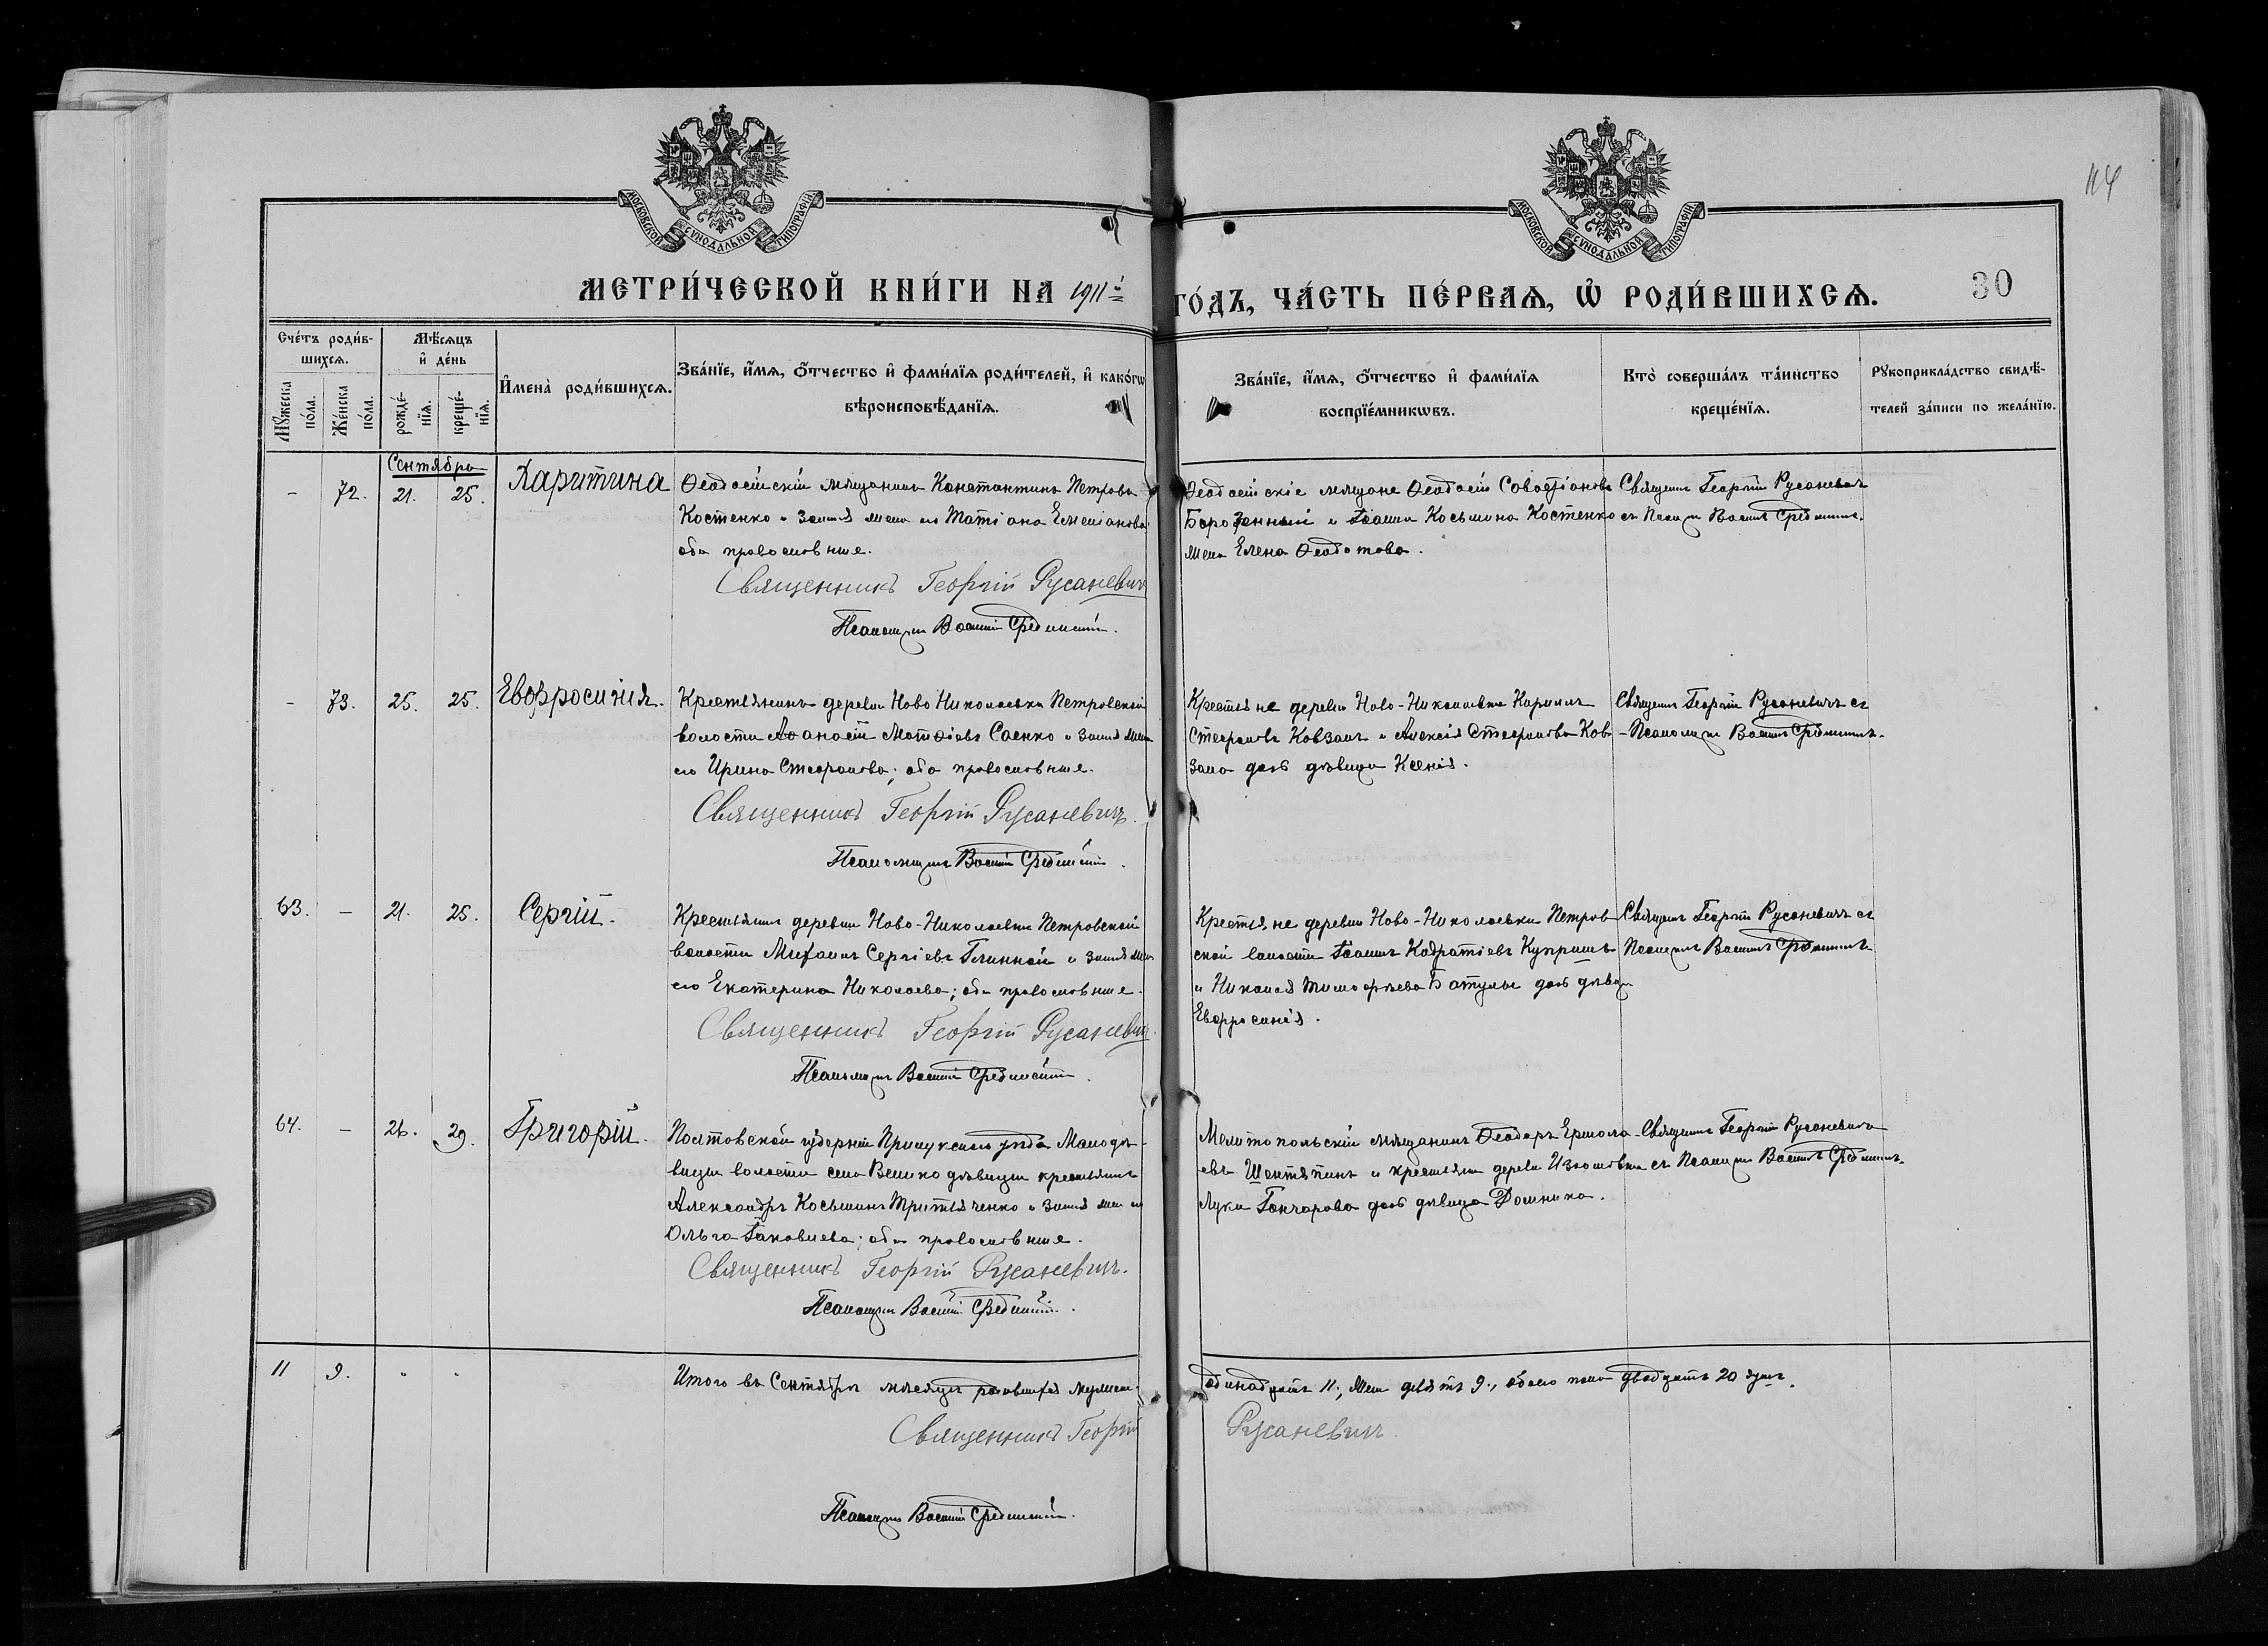 114
МОСКОВСКОЙ СУНОДАЛЬНОЙ ТИПОГРАФІИ
МОСКОВСКОЙ СУНОДАЛЬНОЙ ТИПОГРАФІИ
МЕТРИ́ЧЕСКОЙ КНИ́ГИ НА 1911й ГО́ДЪ, ЧА́СТЬ ПЕ́РВАЯ, Ѡ РОДИ́ВШИХСЯ.
30
Сче́тъ роди́в-
шихся.
Мѣ́сяцъ
и де́нь
Мꙋ́жеска по́ла.
Же́нска по́ла.
рожде́-
нїя.
креще́-
нїя.
Имена̀ роди́вшихся.
Зва́нїе, и́мя, ѻ́тчество и фами́лїя роди́телей, и како́гѡ
вѣроисповѣ́данїя.
Зва́нїе, и́мя, ѻ́тчество и фами́лїя
воспрїе́мникѡвъ.
Кто̀ соверша́лъ та́инство
креще́нїя.
Рꙋкоприкла́дство свидѣ́-
телей за́писи по жела́нїю.
Сентябрь
- 72. 21. 25. Харитина
Ѳеодосійскій мѣщанинъ Константинъ Петровъ
Костенко и закон жена его Татіана Емеліанова
оба православные.
Священникъ Георгій Русаневичъ
Псаломщикъ Василій
Ѳеодосійскіе мѣщане Ѳеодосій Севастіановъ
Борозенный и Іоанна Косьмина Костенко
жена Елена Ѳеодотова.
Священ Георгій Русаневичъ
съ Псаломщ Василіемъ
- 73. 25. 25. Евфросинія.
Крестьянинъ деревни Ново Николаевки Петровской
волости Аѳанасій Матѳіевъ Саенко и закон жена
его Ирина Стефанова; оба православные.
Священникъ Георгій Русаневичъ.
Псаломщикъ Василій
Крестьяне деревни Ново-Николаевки Кириллъ
Стефановъ Ковзанъ и Алексія Стефанова Ков-
зана дочь дѣвица Ксенія.
Священ Георгій Русаневичъ съ
Псаломщ Василіемъ
63. - 21. 25. Сергій.
Крестьянинъ деревни Ново-Николаевки Петровской
волости Михаилъ Сергіевъ Глинной и закон жена
его Екатерина Николаева; оба православные.
Священникъ Георгій Русаневичъ.
Псаломщикъ Василій
Крестьяне деревни Ново-Николаевки Петров-
ской волости Іоаннъ Кодратіевъ
и Николая Тимофѣева дочь дѣвица
Евфросинія.
Священ Георгій Русаневичъ съ
Псаломщ Василіемъ
64. - 26. 29. Григорій.
Полтавской губерніи Прилукскаго уѣзда Малодѣ-
вицы волости села Великодѣвицы крестьянинъ
Александръ Косьминъ Третьяченко и закон жена его
Ольга Іаковлева; оба православные.
Священникъ Георгій Русаневичъ.
Псаломщикъ Василій
Мелитопольскій мѣщанинъ Ѳеодоръ Ермола-
евъ и крестьян деревни
Луки Гончарова дочь дѣвица Домника.
Священ Георгій Русаневичъ
съ Псаломщ Василіемъ
11 9. " "
Итого въ Сентябрѣ мѣсяцѣ родившихся мужескаго
одинадцать 11., жен девять 9., обоего пола двадцать 20 душъ.
Священникъ Георгій Русаневичъ
Псаломщикъ Василій